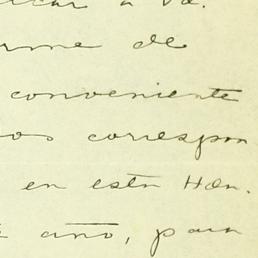 icar a Vd.
rme de
conveniente
os correspon
en esta Hon.
año, para